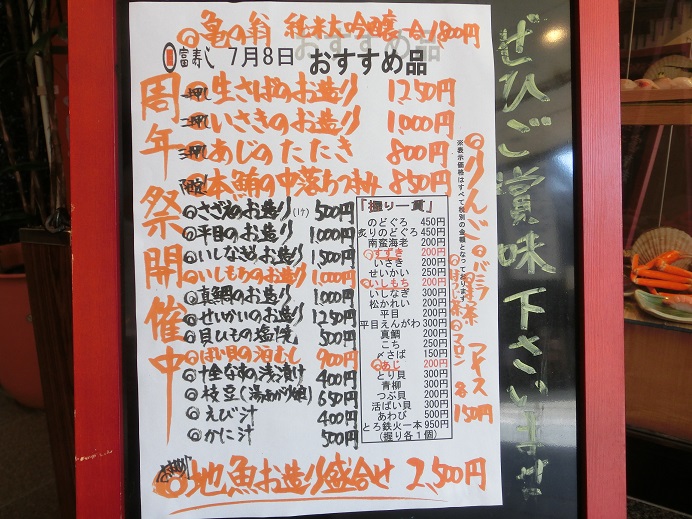 ◎亀の翁 純米大吟醸 一合 1,800円
富寿し 7月8日 おすすめ品
周年祭開催中
一押し ◎生さばのお造り 1,250円
二押し ◎いさきのお造り 1,000円
三押し ◎あじのたたき 800円
◎本鮪の中落ちつまみ 850円
◎さざえのお造り(1ケ) 500円
◎平目のお造り 1,000円
◎いしなぎのお造り 1,500円
◎いしもちのお造り 1,000円
◎真鯛のお造り 1,000円
◎せいかいのお造り 1,250円
◎貝ひもの塩焼 500円
◎ばい貝の酒むし 900円
◎十全なすの浅漬け 400円
◎枝豆(湯あがり娘) 650円
◎えび汁 400円
◎かに汁 500円
「握り一貫」
のどぐろ 450円
炙りのどぐろ 450円
南蛮海老 200円
◎すずき 200円
いさき 200円
せいかい 250円
◎いしもち 200円
いしなぎ 300円
松かれい 200円
平目 200円
平目えんがわ 300円
真鯛 200円
こち 250円
〆さば 150円
◎あじ 200円
とり貝 300円
青柳 300円
つぶ貝 200円
活ばい貝 300円
あわび 500円
とろ鉄火一本 950円
(握り各1個)
※表示価格はすべて税別の金額となって居ります
◎りんご
◎ほうじ茶 ◎マロン
アイス
各150円
◎地魚お造り盛合せ 2,500円
ぜひご賞味下さいませ